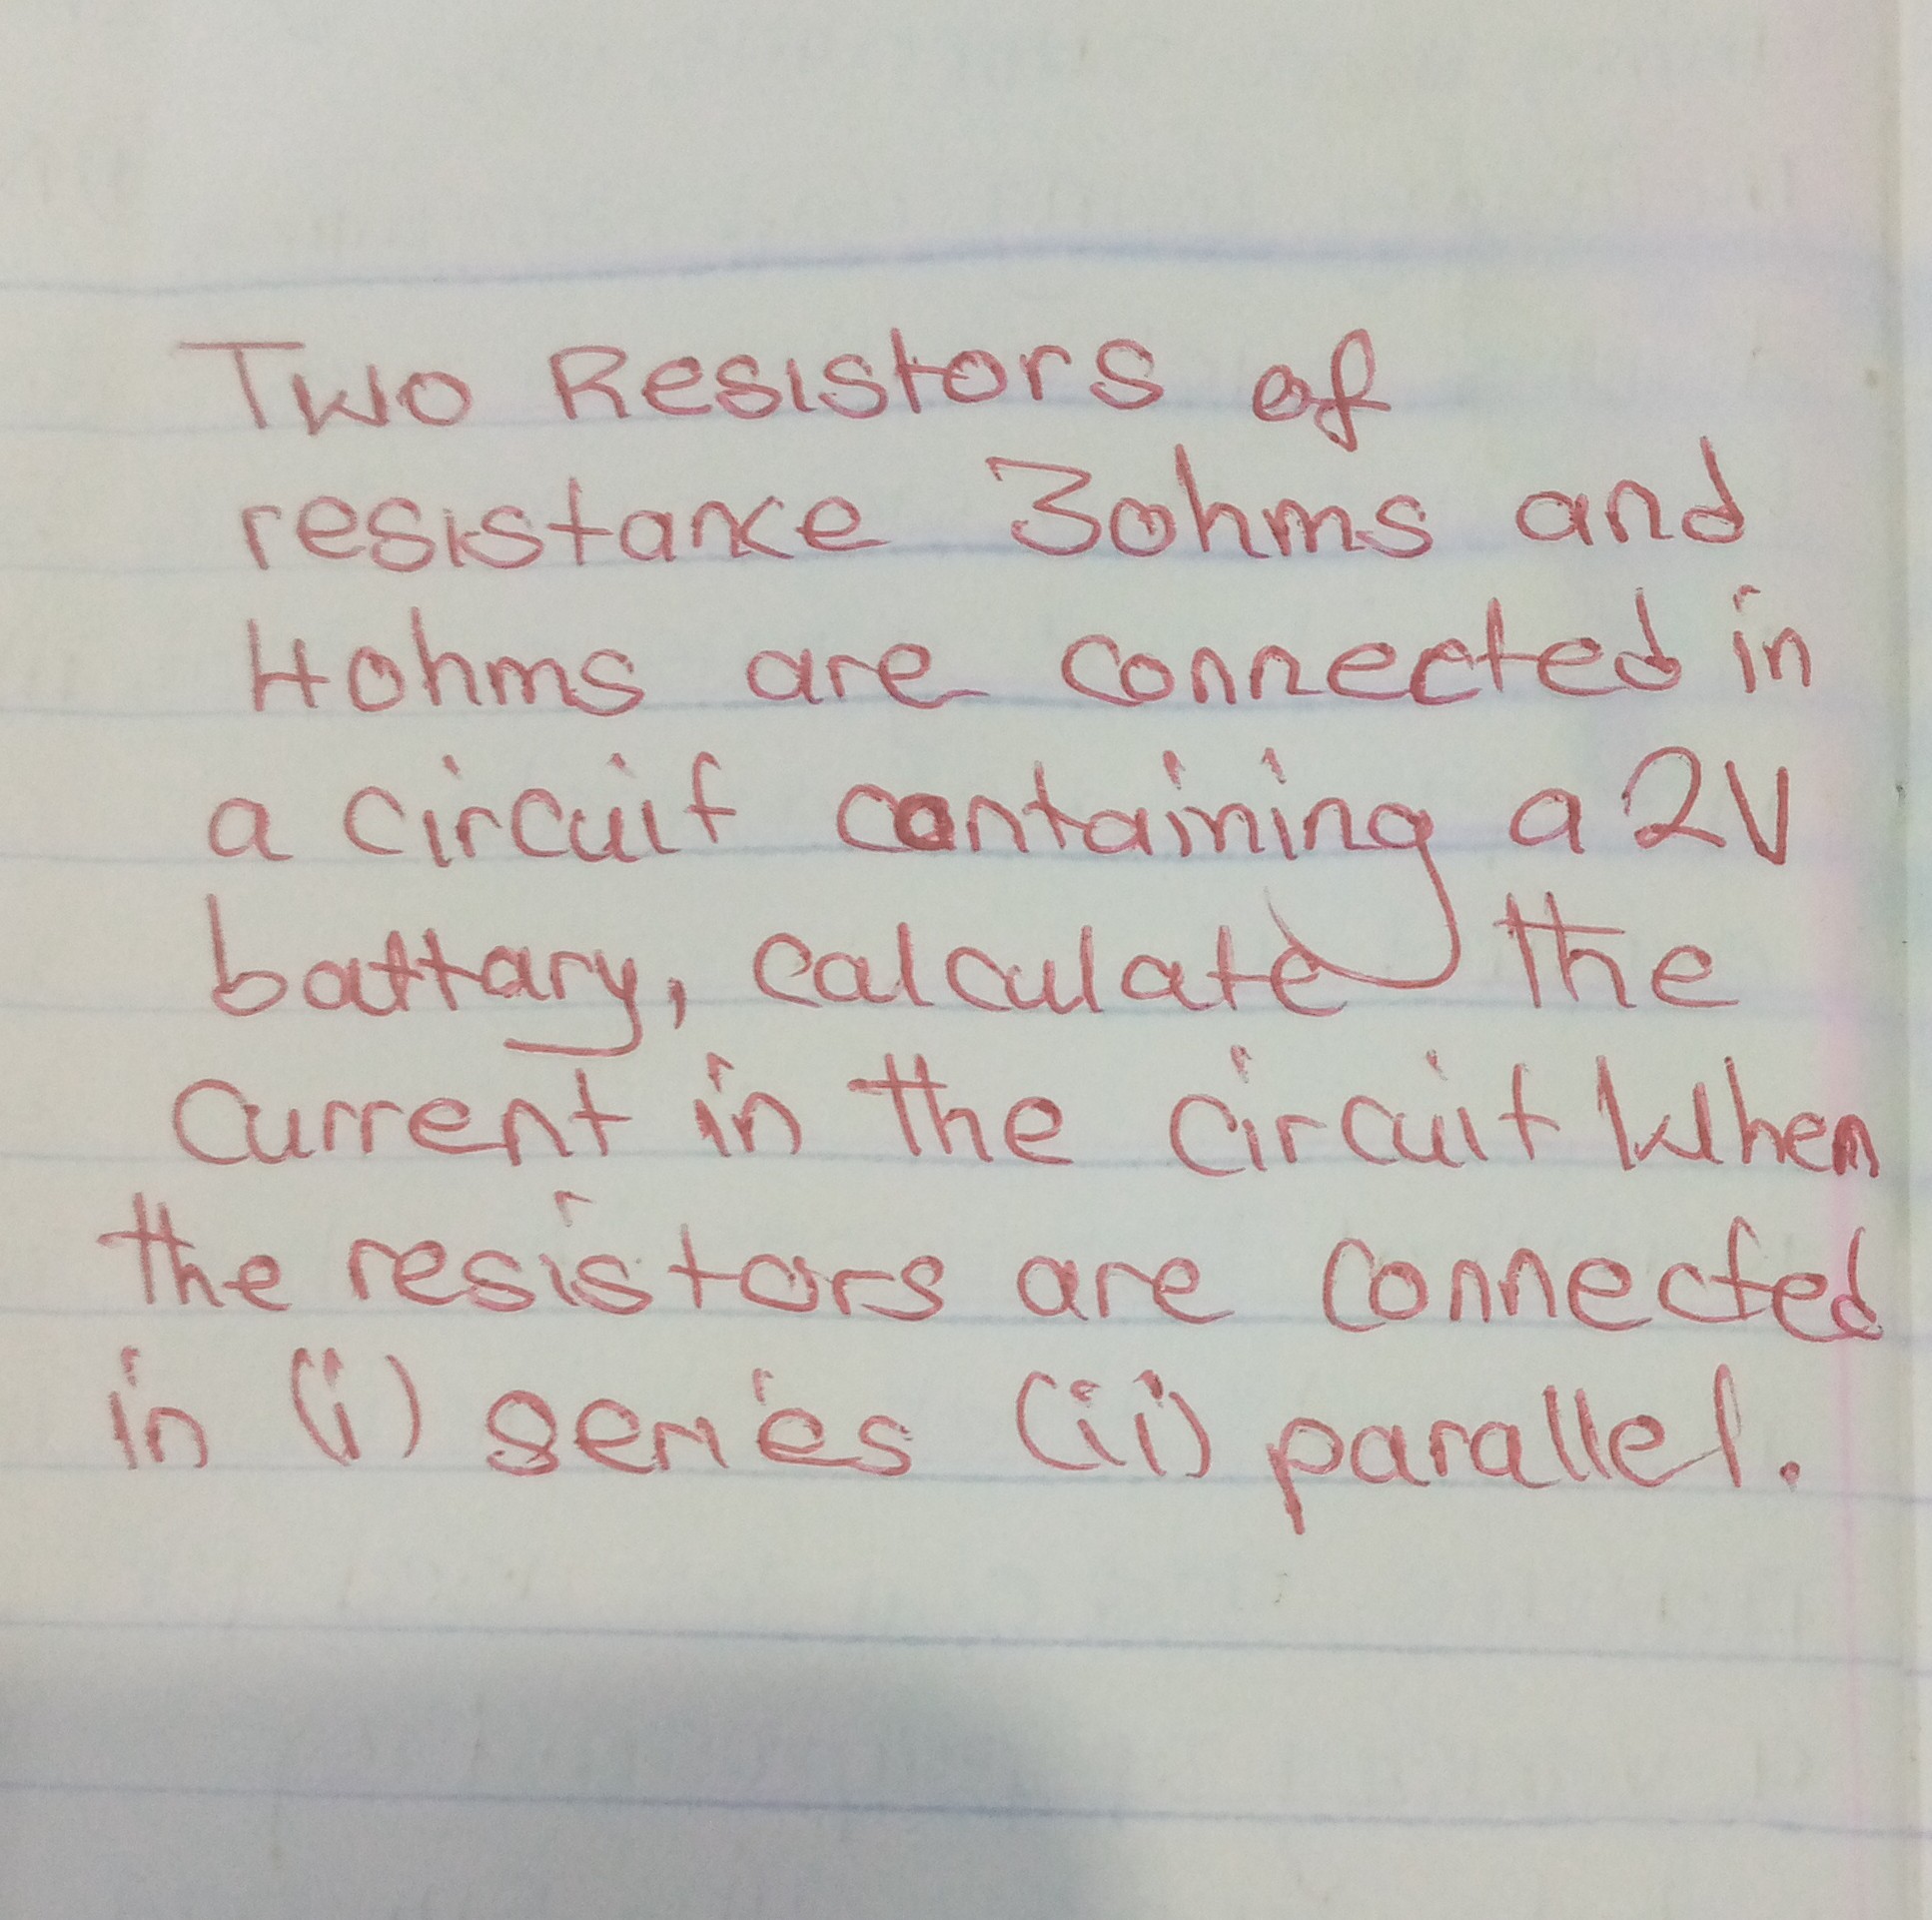 Two Resistors of
resistance 3ohms and
4ohms are connected in
a circuit containing a 2V
battary, calculate the
current in the circuit when
the resistors are connected
in (i) series (ii) parallel.